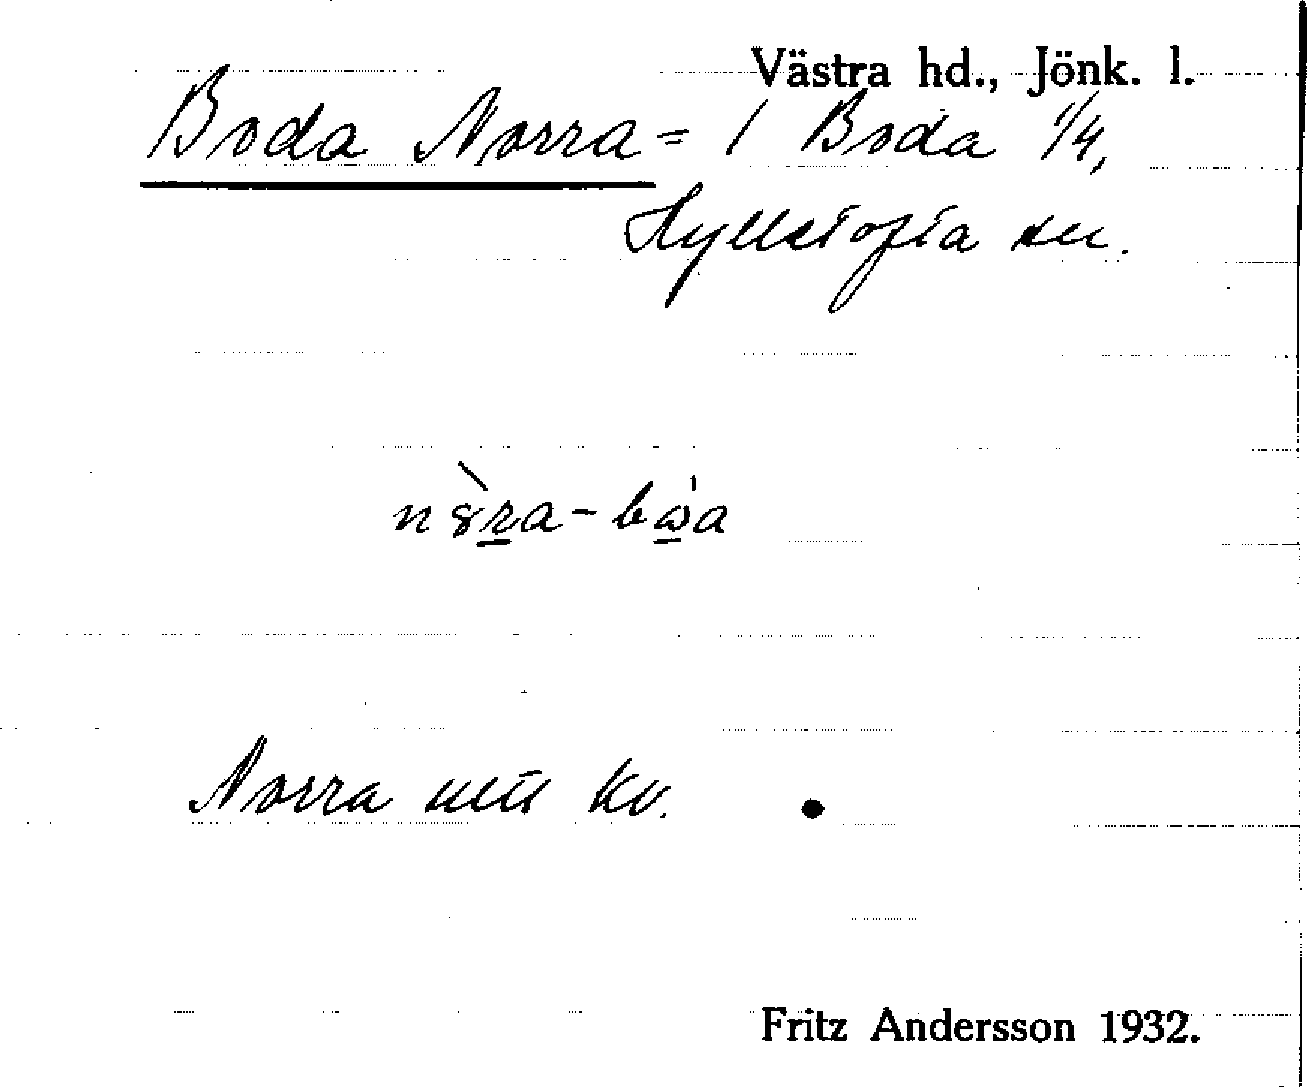 Västra hd., Jönk. l.
Boda Norra = 1 Boda 1/4,
Hylletofta sn.
Norra mtl kv.
Fritz Andersson 1932.